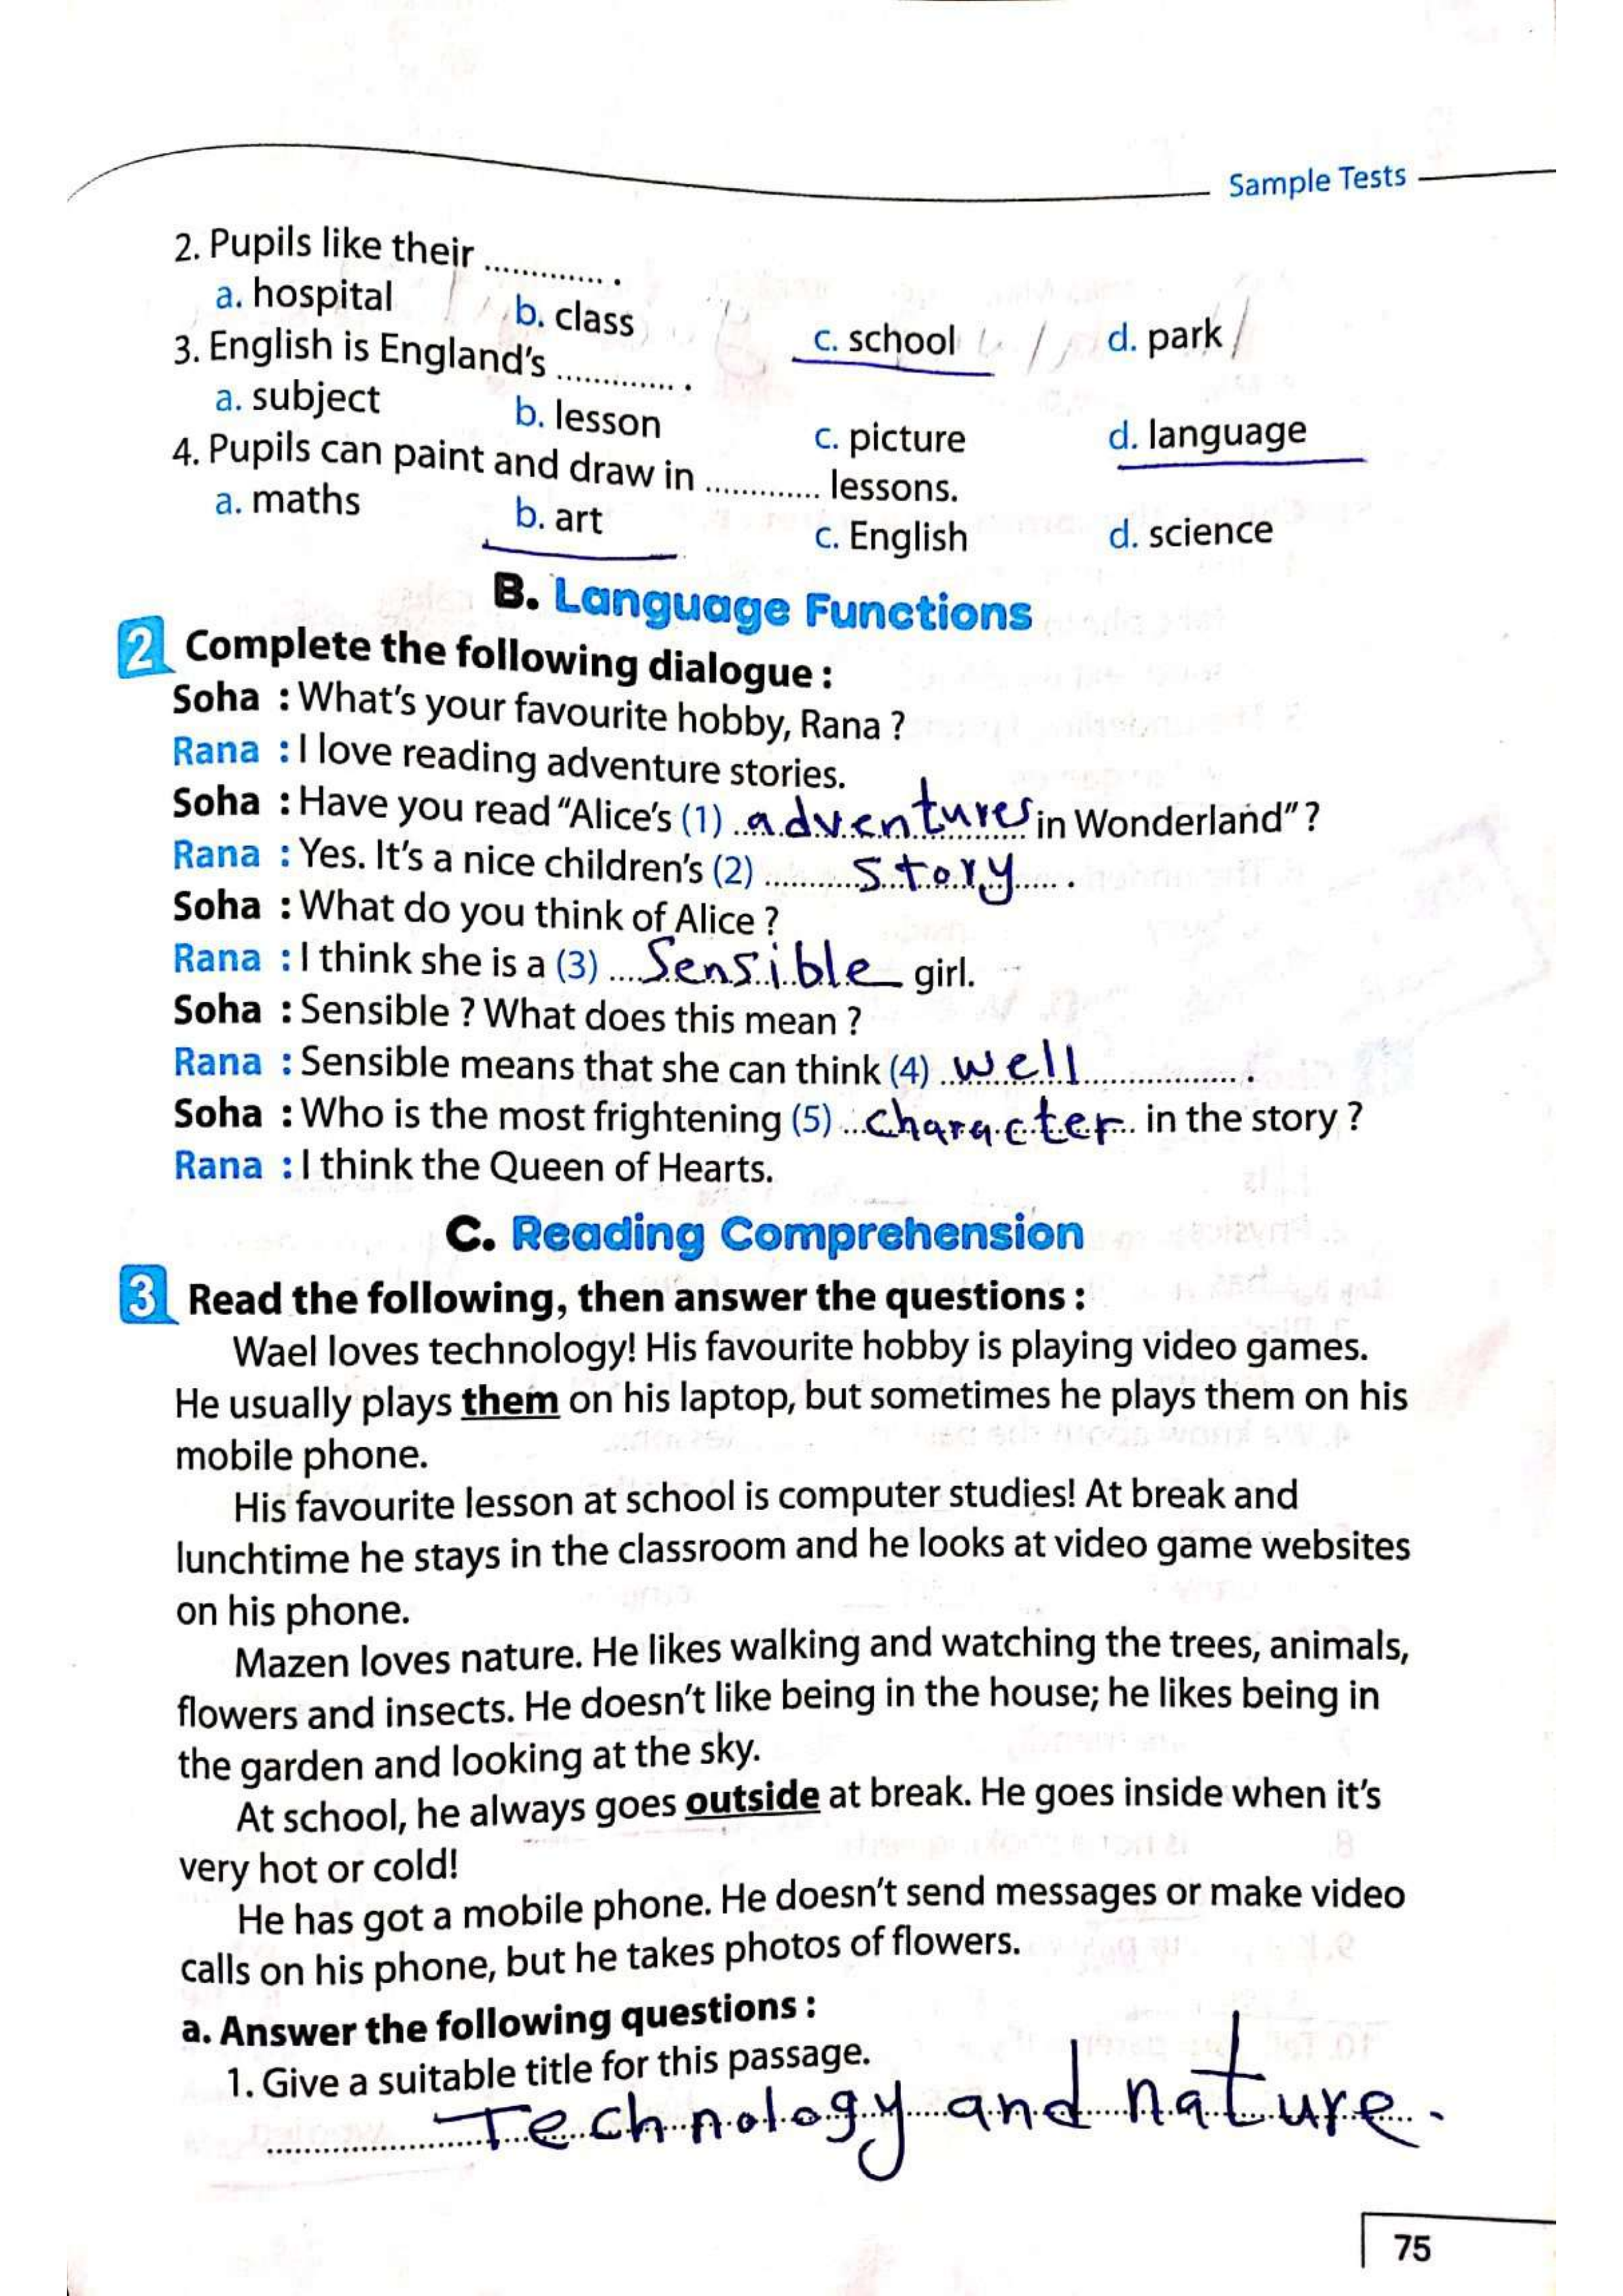 Sample Tests
2. Pupils like their ............. .
a. hospital b. class c. school d. park
3. English is England's ............. .
a. subject b. lesson c. picture d. language
4. Pupils can paint and draw in ............. lessons.
a. maths b. art c. English d. science
B. Language Functions
2 Complete the following dialogue :
Soha : What's your favourite hobby, Rana ?
Rana : I love reading adventure stories.
Soha : Have you read "Alice's (1) adventures in Wonderland" ?
Rana : Yes. It's a nice children's (2) story .
Soha : What do you think of Alice ?
Rana : I think she is a (3) Sensible girl.
Soha : Sensible ? What does this mean ?
Rana : Sensible means that she can think (4) well .
Soha : Who is the most frightening (5) character in the story ?
Rana : I think the Queen of Hearts.
C. Reading Comprehension
3 Read the following, then answer the questions :
Wael loves technology! His favourite hobby is playing video games.
He usually plays them on his laptop, but sometimes he plays them on his
mobile phone.
His favourite lesson at school is computer studies! At break and
lunchtime he stays in the classroom and he looks at video game websites
on his phone.
Mazen loves nature. He likes walking and watching the trees, animals,
flowers and insects. He doesn't like being in the house; he likes being in
the garden and looking at the sky.
At school, he always goes outside at break. He goes inside when it's
very hot or cold!
He has got a mobile phone. He doesn't send messages or make video
calls on his phone, but he takes photos of flowers.
a. Answer the following questions :
1. Give a suitable title for this passage.
Technology and nature.
75